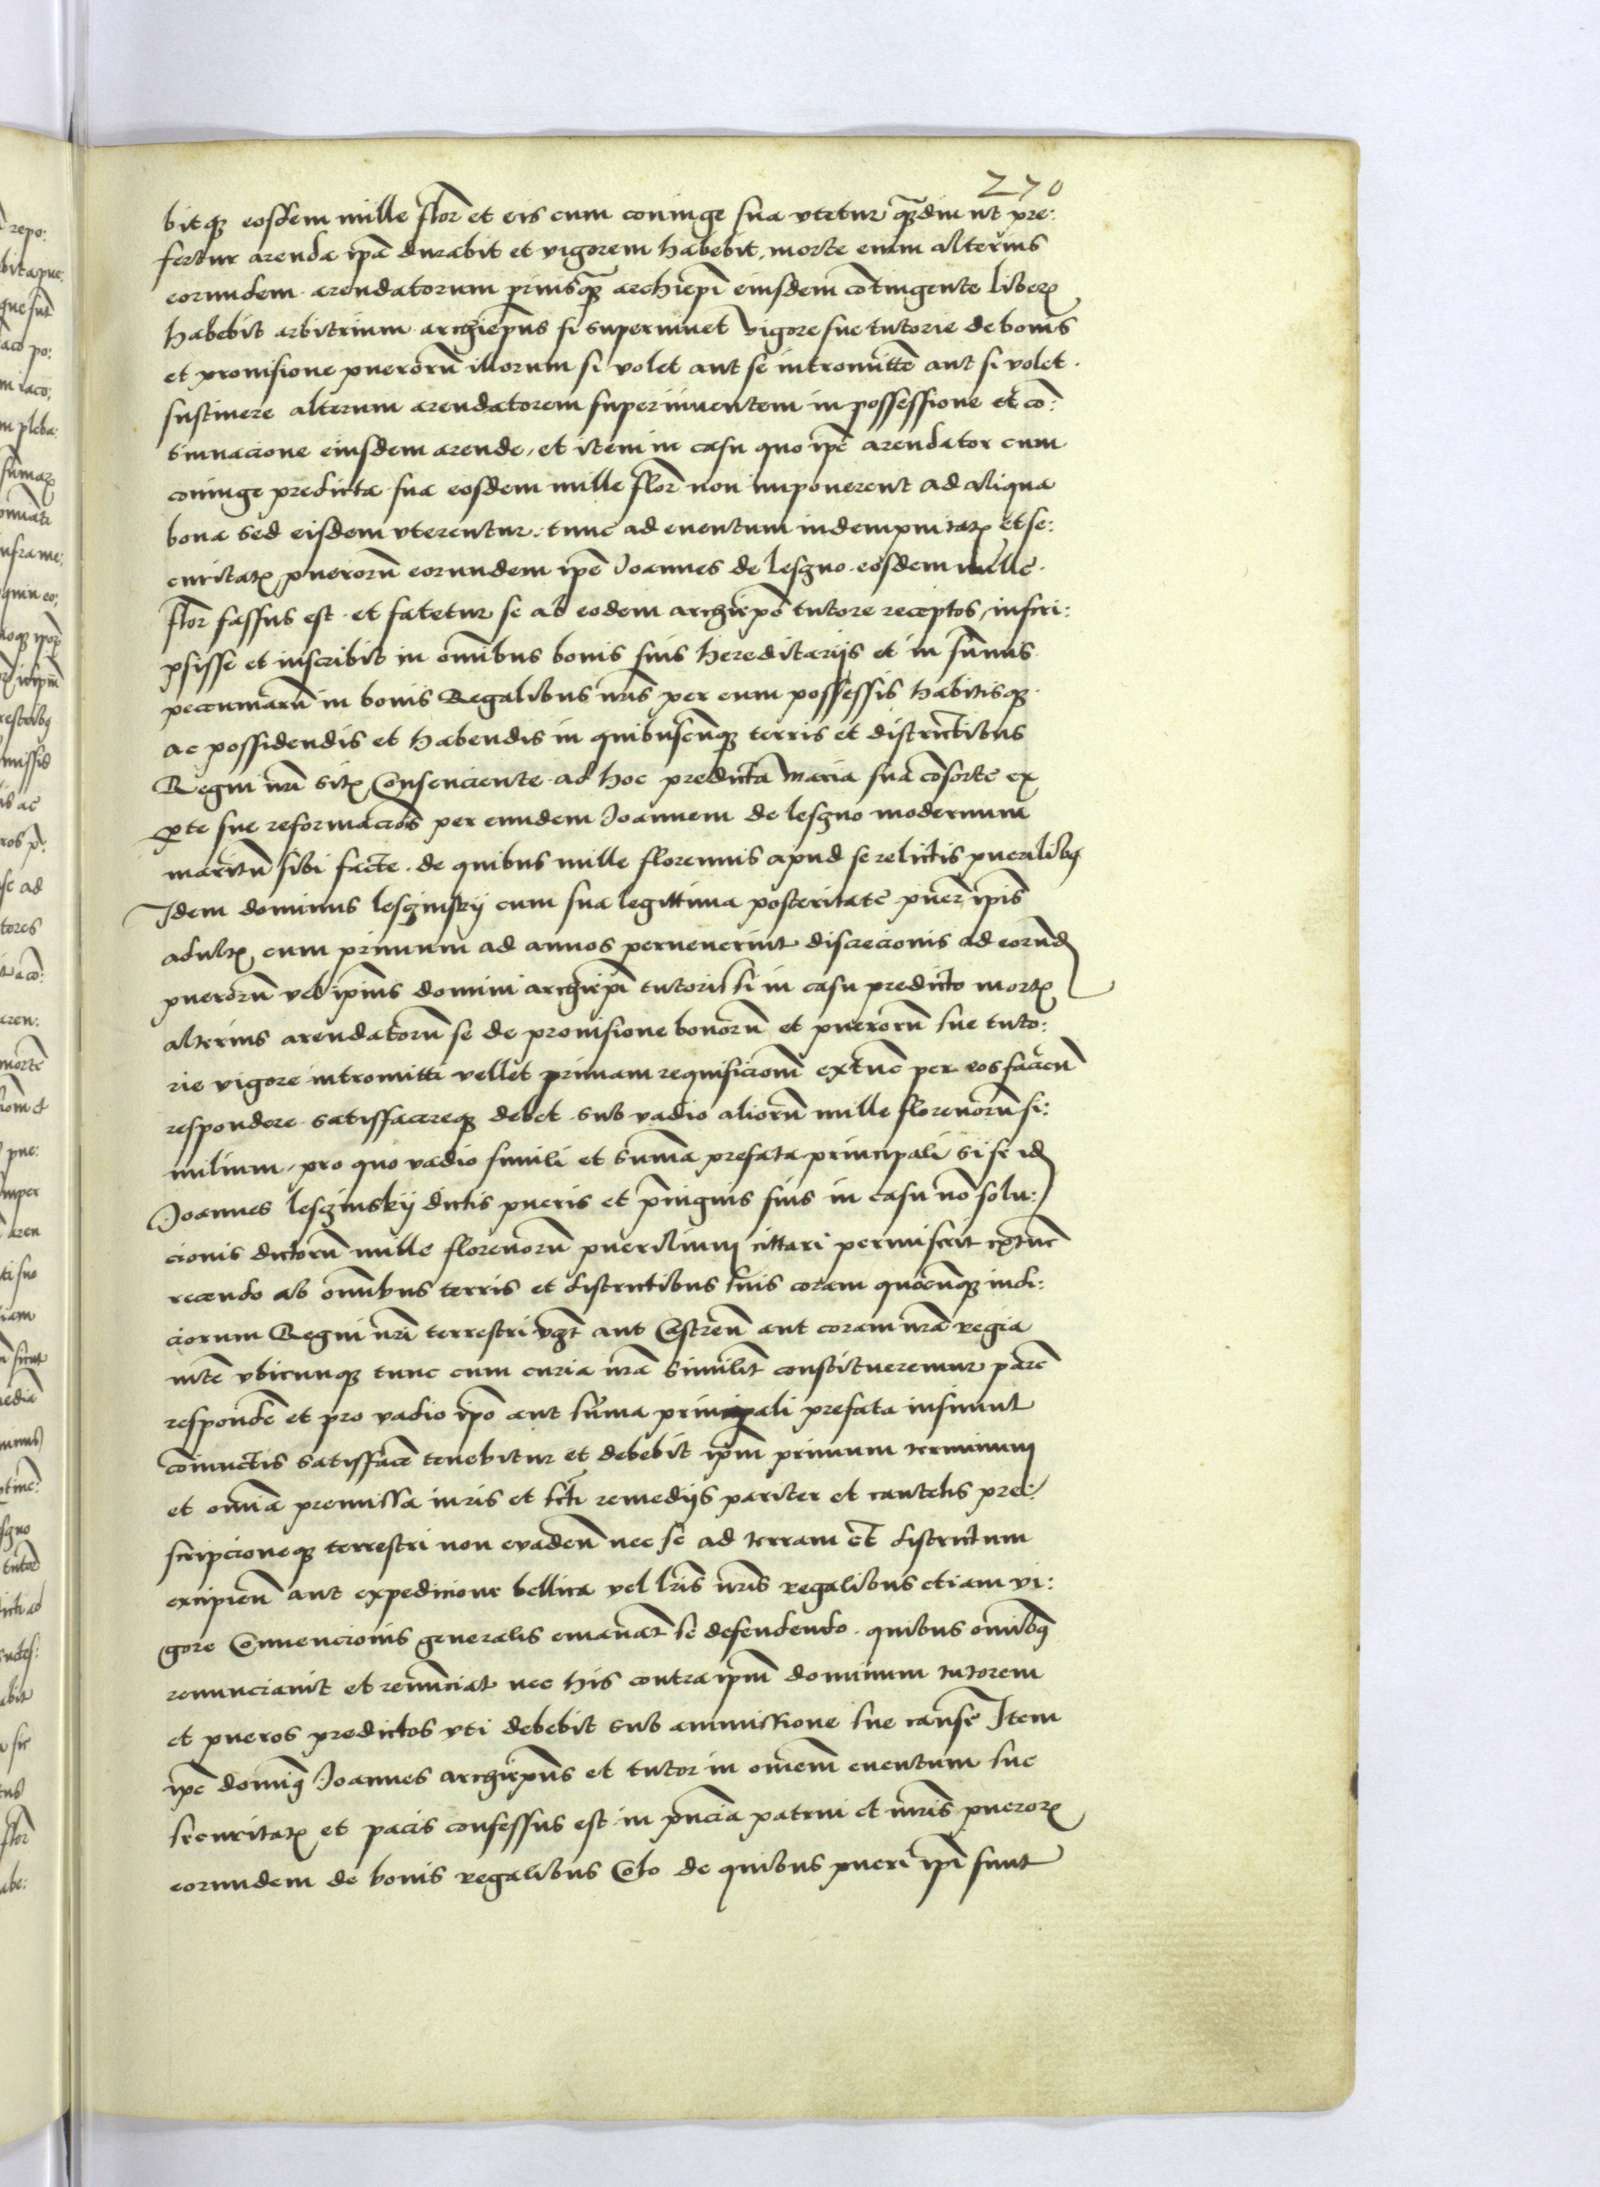 270
bitq eosdem mille flor et eis cum coniuge sua vtetur qdiu ut pre:
fertur arenda ipa durabit et vigorem habebit, morte enim alterius
eorundem arendatorum priusq archiepi eiusdem contingente liberu
habebit arbitrium archiepus si superuiuet vigore sue tutorie de bonis
et prouisione pueroru illorum si volet aut se intromitte aut si volet
sustinere alterum arendatorem superuiuentem in possessione et co:
tinuacione eiusdem arende, et item in casu quo ipe arendator cum
coniuge predicta sua eosdem mille flor non imponerent ad aliqua
bona sed eisdem vterentur, tunc ad euentum indempnitat et se:
curitat pueroru eorundem ipe Joannes de leszno eosdem mille
flor fassus est et fatetur se ab eodem archiepo tutore receptos, inscri:
psisse et inscribit in omnibus bonis suis hereditarijs et in sumis
pecuniaru in bonis Regalibus nris per eum possessis habitisq
ac possidendis et habendis in quibuscunq terris et districtibus
Regni nri sit Consenciente ad hoc predicta Maria sua consorte ex
pte sue reformacois per eundem Joannem de leszno modernum
maritu sibi facte. de quibus mille florenis apud se relictis puerilibq
Idem dominus lesczinskij cum sua legittima posteritate puer ipis
adult, cum primum ad annos peruenerint discrecionis ad eorund
pueroru vel ipius domini archiepi tutoris si in casu predicto mort
alterius arendatoru se de prouisione bonoru et pueroru sue tuto:
rie vigore intromitti vellet primam requisicionem extunc per eos facien
respondere satisfacereq debet sub vadio alioru mille florenoru si:
milium, pro quo vadio simili et suma prefata principali si se id
Joannes lesczinskij dictis pueris et pinquis suis in casu no solu:
cionis dictoru mille florenoru puerilium cittari permiserit extunc
recendo ab omnibus terris et districtibus suis coram quocunq iudi:
ciorum Regni nri terrestri vzt aut Castren aut coram nra regia
mte vbicunq tunc cum curia nra similit constitueremur pare
responde et pro vadio ipo aut suma principali prefata insimul
coniunctis satisface tenebitur et debebit ipm primum terminum
et omnia premissa iuris et sti remedijs pariter et cautelis pre:
scripcioneq terrestri non euaden nec se ad terram et districtum
excipien aut expedicione bellica vel lris nris regalibus etiam vi:
gore Conuencionis generalis emanat se defendendo. quibus omnibq
renunciauit et renunciat nec his contra ipm dominum tutorem
et pueros predictos vti debebit sub ammissione sue cause Item
ipe dominq Joannes archiepus et tutor in omem euentum sue
securitat et pacis confessus est in pncia patrui et mris pueror
eorundem de bonis regalibus Colo de quibus pueri ipi sunt